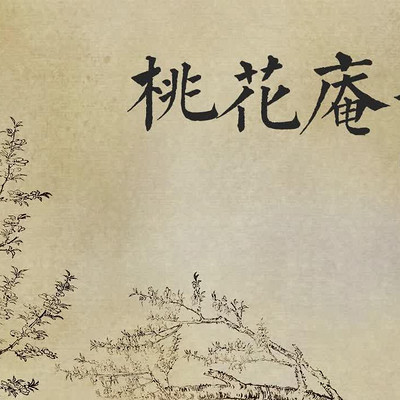 桃花庵